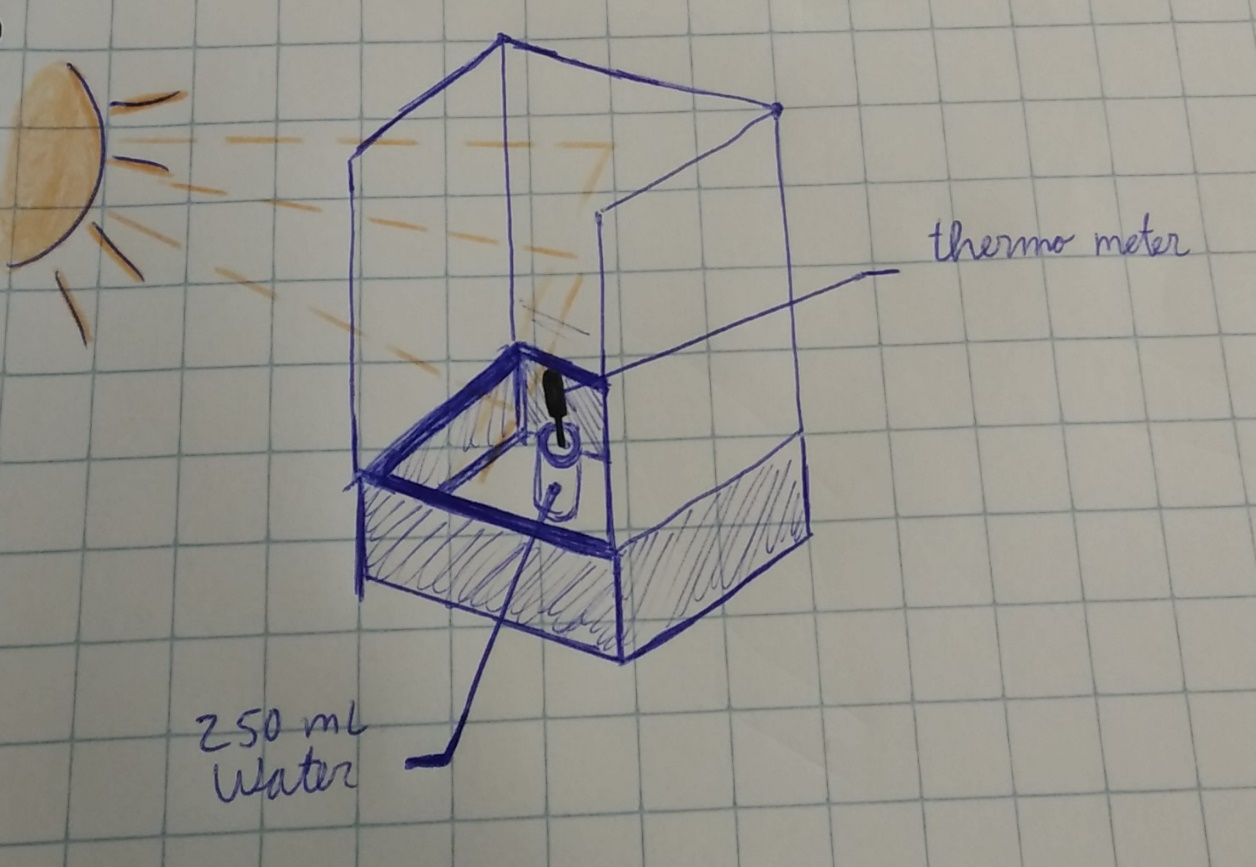 thermo meter
250 mL
Water